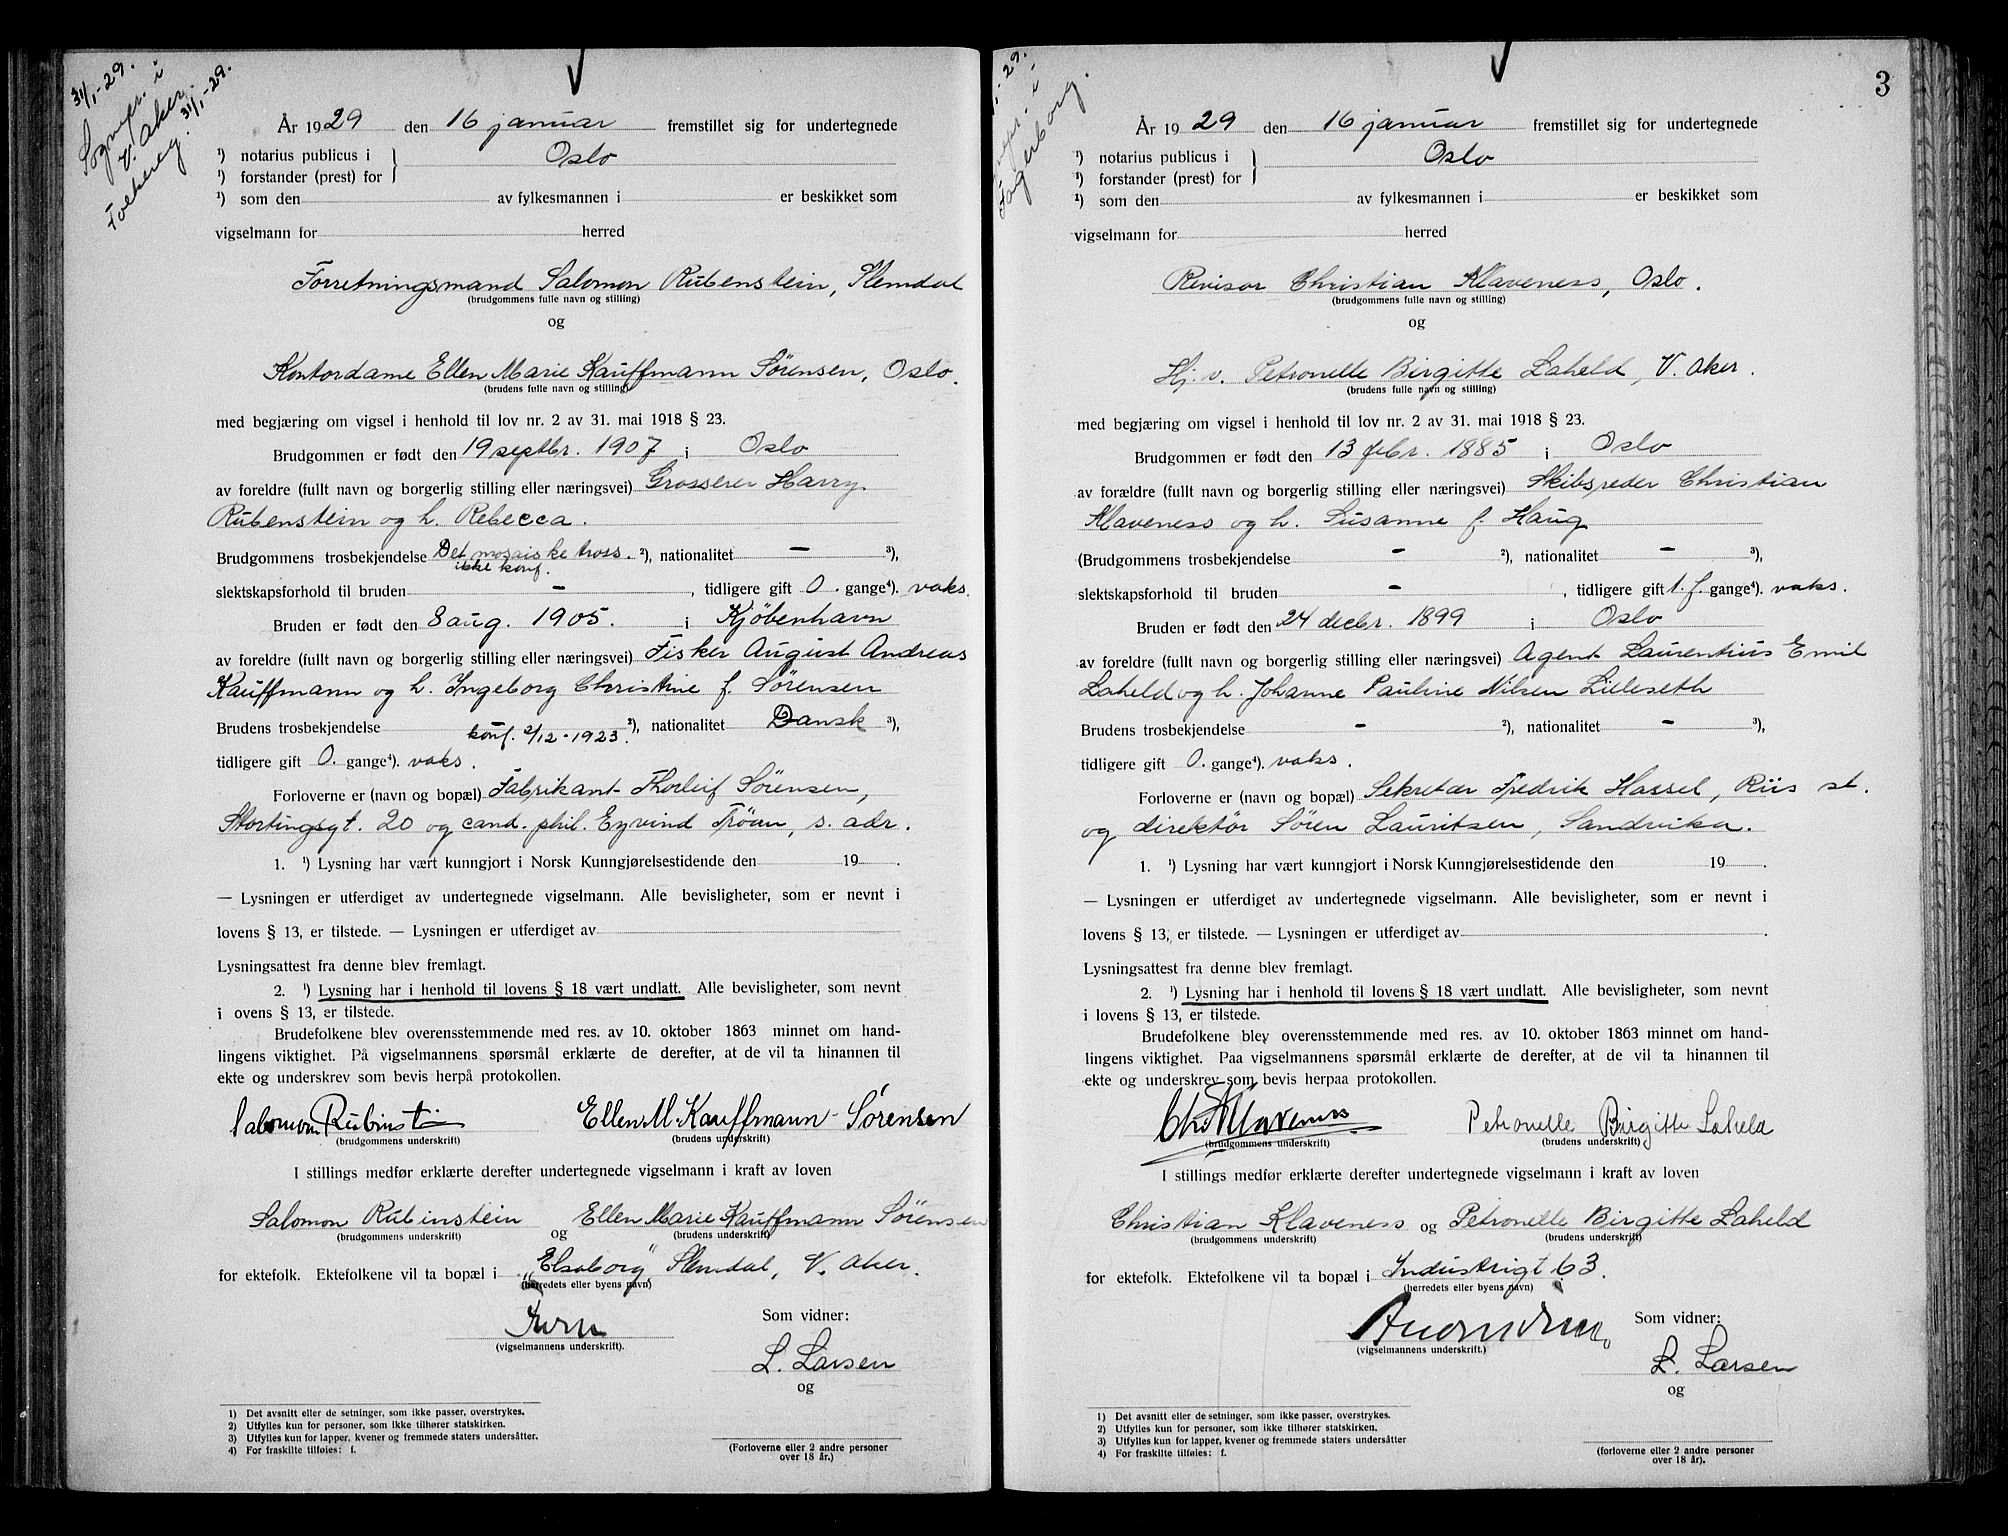 31/1-29.
Sognepr. i
V. Aker.
31/1-29.
År 1929 den 16 januar fremstillet sig for undertegnede
¹) notarius publicus i } Oslo
¹) forstander (prest) for
¹) som den av fylkesmannen i er beskikket som
vigselmann for herred
Forretningsmand Salomon Rubenstein, Slemdal
(brudgommens fulle navn og stilling)
og
Kontordame Ellen Marie Kauffmann Sørensen, Oslo.
(brudens fulle navn og stilling)
med begjæring om vigsel i henhold til lov nr. 2 av 31. mai 1918 § 23.
Brudgommen er født den 19 septbr. 1907 i Oslo
av foreldre (fullt navn og borgerlig stilling eller næringsvei) Grosserer Harry
Rubenstein og h. Rebecca.
Brudgommens trosbekjendelse Det mosaiske tross. ²), nationalitet — ³),
ikke konf.
slektskapsforhold til bruden — , tidligere gift 0. gange⁴). vaks.
Bruden er født den 8 aug. 1905. i Kjøbenhavn
av foreldre (fullt navn og borgerlig stilling eller næringsvei) Fisker August Andreas
Kauffmann og h. Ingeborg Christine f. Sørensen
Brudens trosbekjendelse konf. 2/12-1923. ²), nationalitet Dansk ³),
tidligere gift 0. gange⁴). vaks.
Forloverne er (navn og bopæl) Fabrikant Thorleif Sørensen,
Stortingsgt. 20 og cand. phil. Eyvind Tröan, s. adr.
1. ¹) Lysning har vært kunngjort i Norsk Kunngjørelsestidende den 19 .
— Lysningen er utferdiget av undertegnede vigselmann. Alle bevisligheter, som er nevnt i
lovens § 13, er tilstede. — Lysningen er utferdiget av
Lysningsattest fra denne blev fremlagt.
2. ¹) Lysning har i henhold til lovens § 18 vært undlatt. Alle bevisligheter, som nevnt
i ovens § 13, er tilstede.
Brudefolkene blev overensstemmende med res. av 10. oktober 1863 minnet om hand-
lingens viktighet. På vigselmannens spørsmål erklærte de derefter, at de vil ta hinannen til
ekte og underskrev som bevis herpå protokollen.
Salomon Rubinstein Ellen M. Kauffmann-Sørensen
(brudgommens underskrift) (brudens underskrift)
I stillings medfør erklærte derefter undertegnede vigselmann i kraft av loven
Salomon Rubinstein og Ellen Marie Kauffmann Sørensen
(brudgommens underskrift) (brudens underskrift)
for ektefolk. Ektefolkene vil ta bopæl i "Elsaborg" Slemdal, V. Aker.
(herredets eller byens navn)
Som vidner:
(vigselmannens underskrift).
L. Larsen
og
1) Det avsnitt eller de setninger, som ikke passer, overstrykes.
2) Utfylles kun for personer, som ikke tilhører statskirken.
3) Utfylles kun for lapper, kvener og fremmede staters undersåtter.
4) For fraskilte tilføies: f.
(Forloverne eller 2 andre personer
over 18 år.)
3
-29.
i
Fagerborg.
År 1929 den 16 januar fremstillet sig for undertegnede
¹) notarius publicus i } Oslo
¹) forstander (prest) for
¹) som den av fylkesmannen i er beskikket som
vigselmann for herred
Revisor Christian Klaveness, Oslo.
(brudgommens fulle navn og stilling)
og
Hj. v. Petronelle Birgitte Laheld, V. Aker.
(brudens fulle navn og stilling)
med begjæring om vigsel i henhold til lov nr. 2 av 31. mai 1918 § 23.
Brudgommen er født den 13 febr. 1885 i Oslo
av forældre (fullt navn og borgerlig stilling eller næringsvei) Skibsreder Christian
Klaveness og h. Susanne f. Haug
(Brudgommens trosbekjendelse - ²), nationalitet - ³),
slektskapsforhold til bruden - , tidligere gift 1. f. gange⁴). vaks.
Bruden er født den 24 decbr. 1899 i Oslo
av forældre (fullt navn og borgerlig stilling eller næringsvei) Agent Laurentius Emil
Laheld og h. Johanne Pauline Nilsen Lilleseth
Brudens trosbekjendelse - ²), nationalitet - ³),
tidligere gift 0. gange⁴). vaks.
Forloverne er (navn og bopæl) Sekretær Fredrik Hassel, Riis st.
og direktör Søren Lauritsen, Sandvika.
1. ¹) Lysning har vært kunngjort i Norsk Kunngjørelsestidende den 19 .
— Lysningen er utferdiget av undertegnede vigselmann. Alle bevisligheter, som er nevnt i
lovens § 13, er tilstede. — Lysningen er utferdiget av .
Lysningsattest fra denne blev fremlagt.
2. ¹) Lysning har i henhold til lovens § 18 vært undlatt. Alle bevisligheter, som nevnt
i lovens § 13, er tilstede.
Brudefolkene blev overensstemmende med res. av 10. oktober 1863 minnet om hand-
lingens viktighet. Paa vigselmannens spørsmål erklærte de derefter, at de vil ta hinannen til
ekte og underskrev som bevis herpaa protokollen.
Chr Klaveness Petronelle Birgitte Laheld
(brudgommens underskrift) (brudens underskrift)
I stillings medfør erklærte derefter undertegnede vigselmann i kraft av loven
Christian Klaveness og Petronelle Birgitte Laheld
(brudgommens underskrift) (brudens underskrift)
for ektefolk. Ektefolkene vil ta bopæl i Industrigt 63.
(herredets eller byens navn)
Som vidner:
(vigselmannens underskrift.)
L. Larsen
og
1) Det avsnitt eller de setninger, som ikke passer, overstrykes.
2) Utfylles kun for personer, som ikke tilhører statskirken.
3) Utfylles kun for lapper, kvener og fremmede staters undersåtter
4) For fraskilte tilføies: f.
(forloverne eller 2 andre personer
over 18 år).